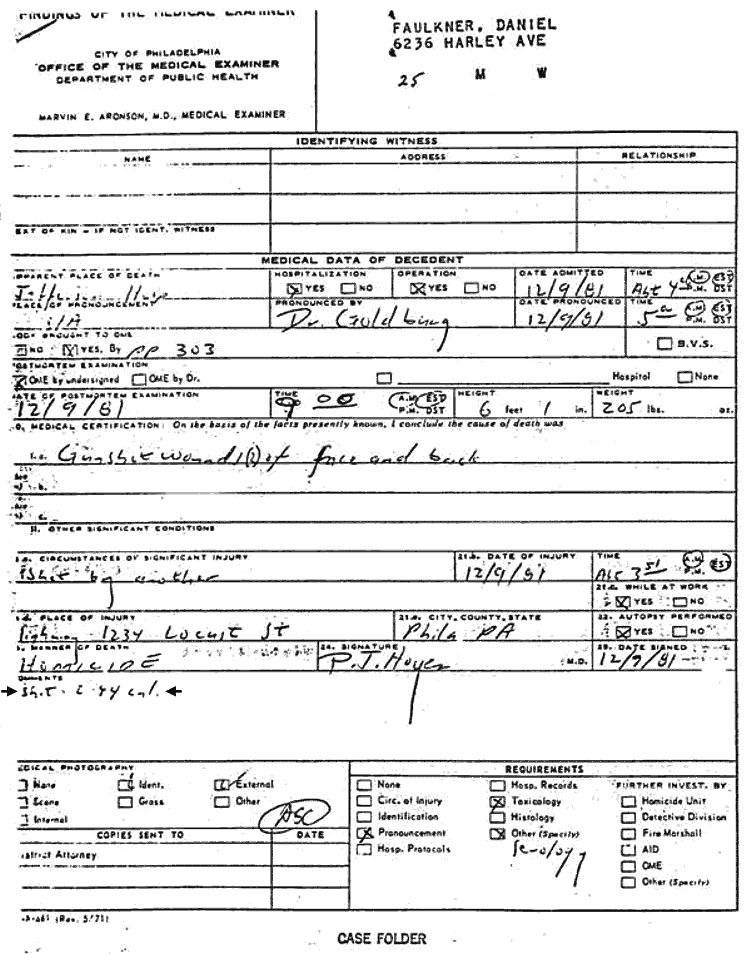 FINDINGS OF THE MEDICAL EXAMINER
CITY OF PHILADELPHIA
OFFICE OF THE MEDICAL EXAMINER
DEPARTMENT OF PUBLIC HEALTH
MARVIN E. ARONSON, M.D., MEDICAL EXAMINER
FAULKNER, DANIEL
6236 HARLEY AVE
25 M W
IDENTIFYING WITNESS
NAME ADDRESS RELATIONSHIP
OF KIN – IF NOT IDENT. WITNESS
MEDICAL DATA OF DECEDENT
PLACE OF DEATH HOSPITALIZATION OPERATION DATE ADMITTED TIME
YES NO YES NO 12/9/81 A.M. EST P.M. DST
PLACE OF PRONOUNCEMENT PRONOUNCED BY DATE PRONOUNCED TIME
Dr. Goldberg 12/9/81 A.M. EST P.M. DST
BROUGHT TO OME
NO YES, By PP 303 B.V.S.
POSTMORTEM EXAMINATION
OME by undersigned OME by Dr. Hospital None
DATE OF POSTMORTEM EXAMINATION TIME HEIGHT WEIGHT
12/9/81 9 00 A.M. EST P.M. DST 6 feet 1 in. 205 lbs. oz.
MEDICAL CERTIFICATION: On the basis of the facts presently known, I conclude the cause of death was
Gunshot wound(s) of face and back
OTHER SIGNIFICANT CONDITIONS
CIRCUMSTANCES OF SIGNIFICANT INJURY 21.b. DATE OF INJURY TIME
Shot by another 12/9/81 3 51 A.M. EST P.M.
21.c. WHILE AT WORK
YES NO
PLACE OF INJURY 21.e. CITY, COUNTY, STATE 22. AUTOPSY PERFORMED
1234 Locust St Phila PA YES NO
MANNER OF DEATH 24. SIGNATURE 25. DATE SIGNED
HOMICIDE P.J. Hoyer M.D. 12/9/81
COMMENTS
Shot 44 cal.
MEDICAL PHOTOGRAPHY REQUIREMENTS
None Ident. External None Hosp. Records FURTHER INVEST. BY
Scene Gross Other Circ. of Injury Toxicology Homicide Unit
Internal Identification Histology Detective Division
COPIES SENT TO DATE Pronouncement Other (Specify) Fire Marshall
District Attorney Hosp. Protocols Serology AID
OME
Other (Specify)
ASC
(Rev. 5/71)
CASE FOLDER